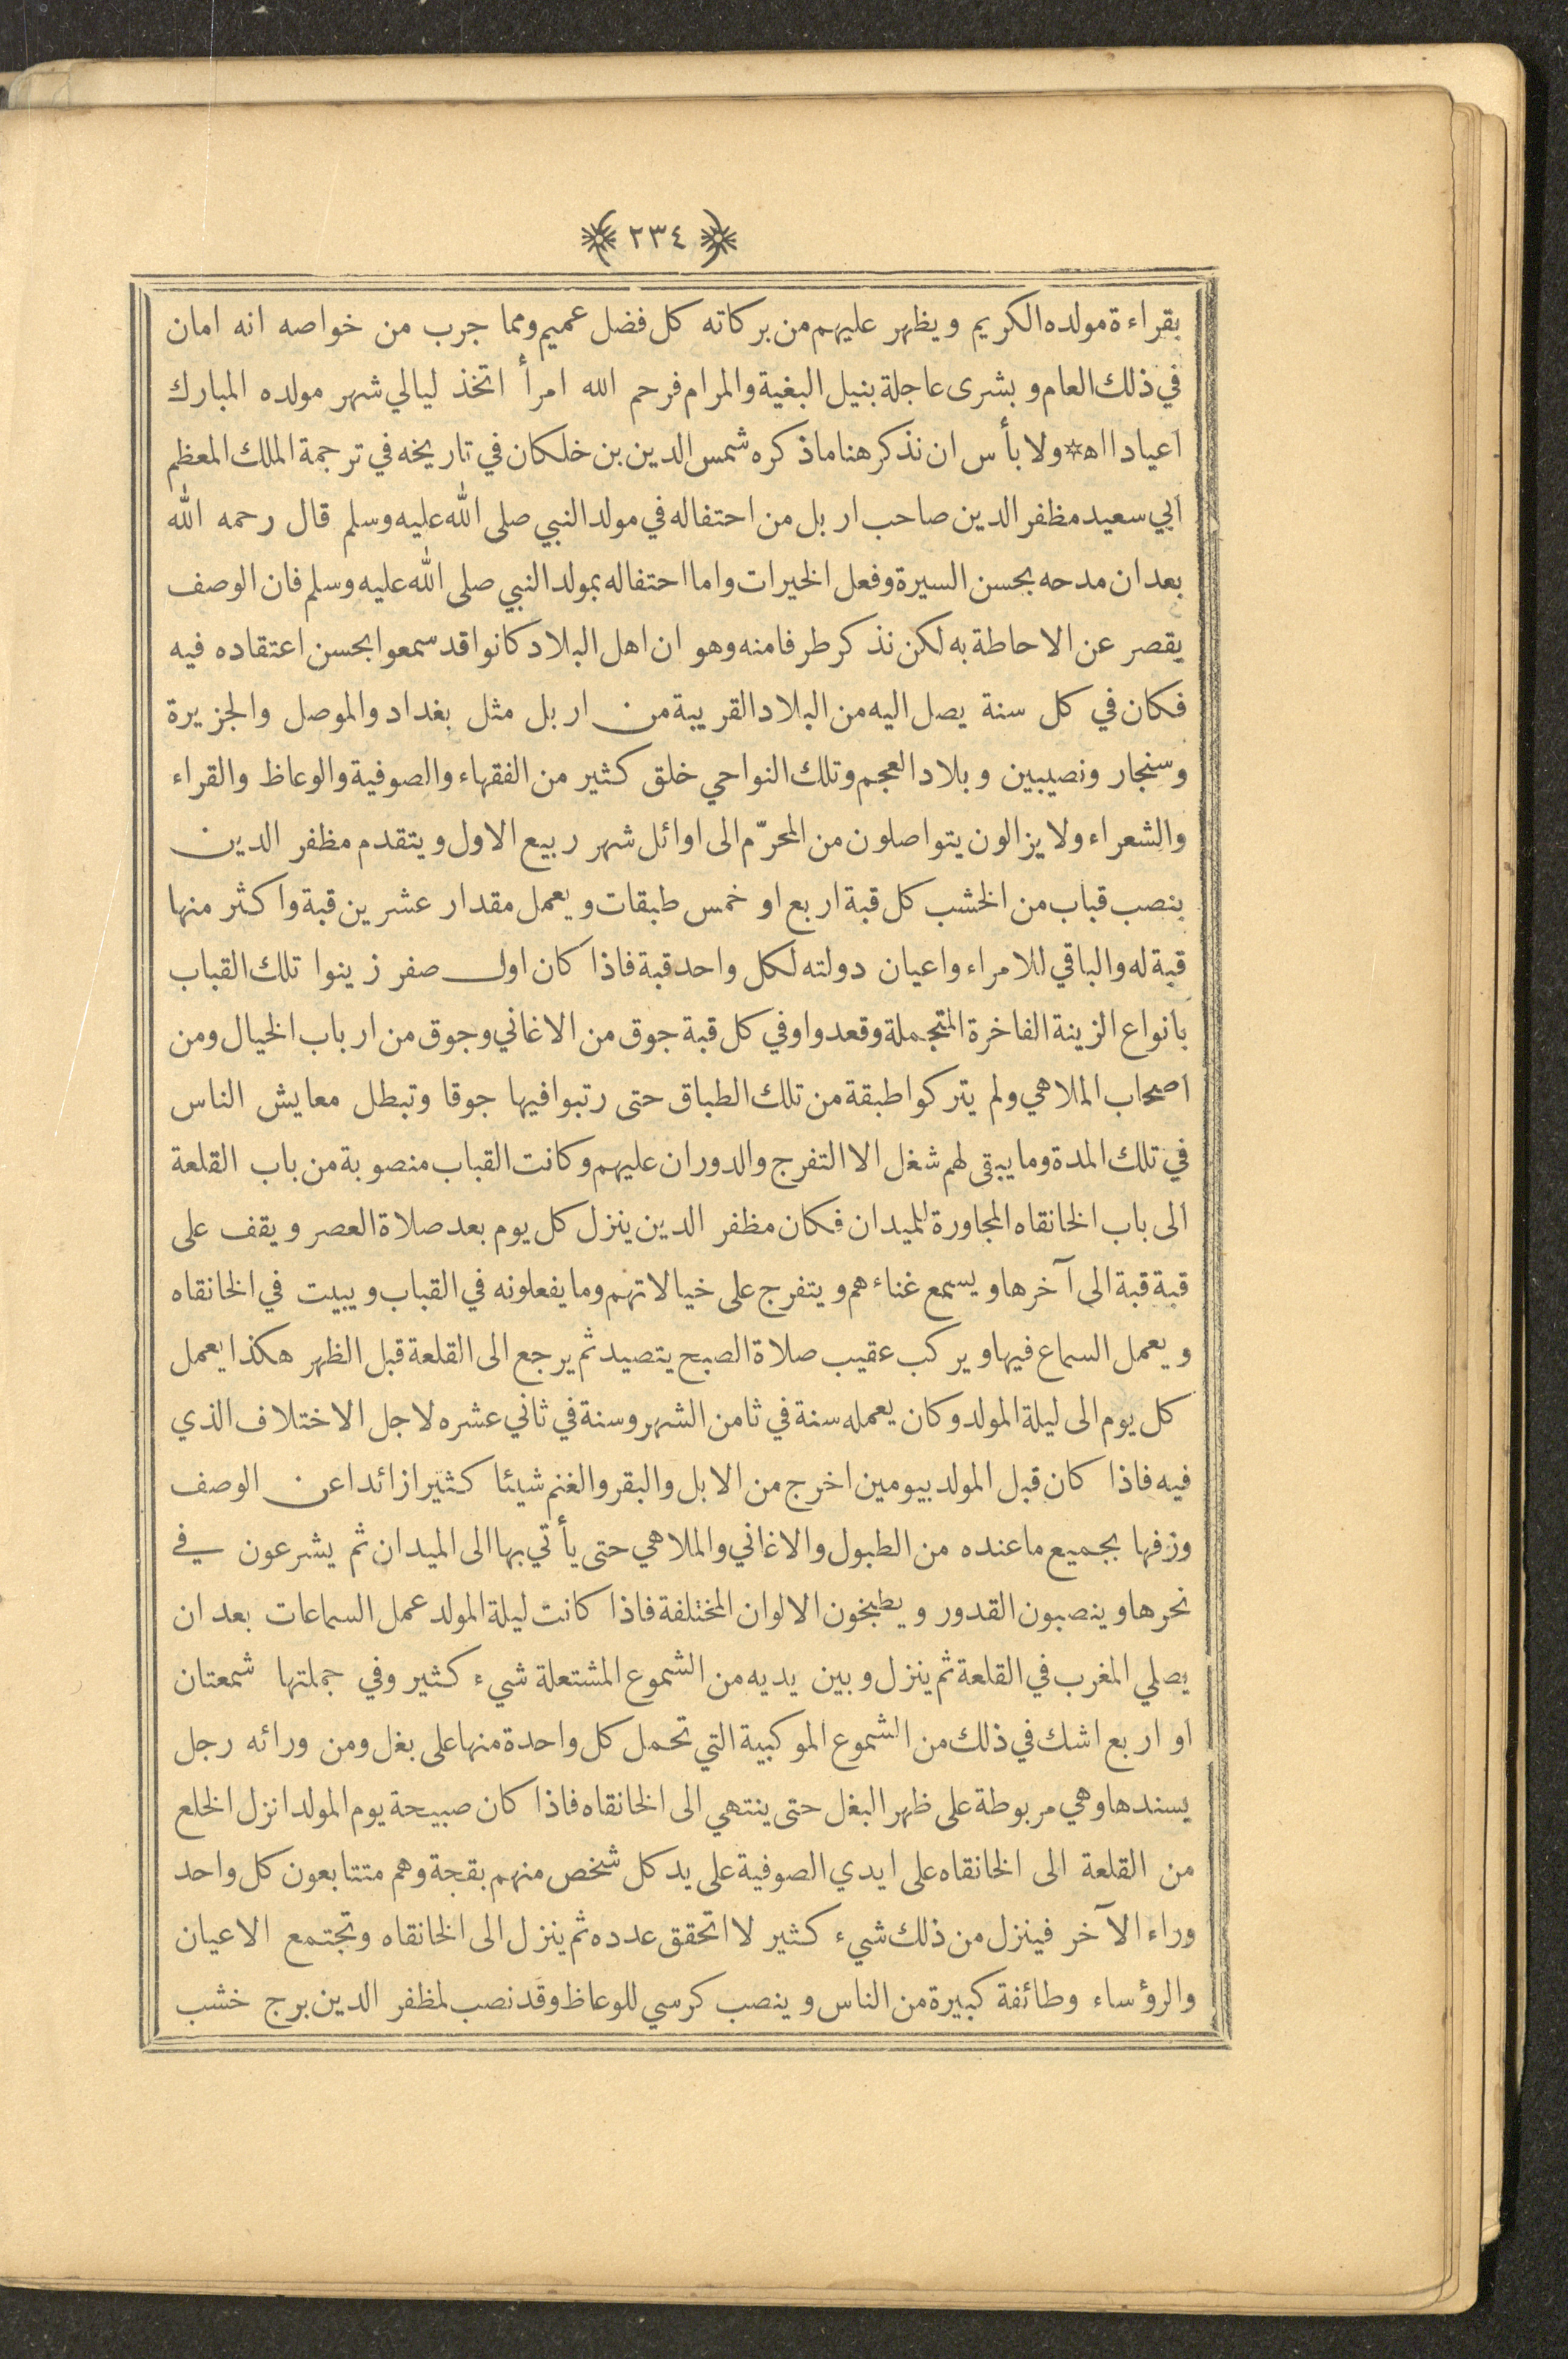 ﴿ ٢٣٤ ﴾
بقراءة مولده الكريم ويظهر عليهم من بركاته كل فضل عميم ومما جرب من خواصه انه امان
في ذلك العام و بشرى عاجلة بنيل البغية والمرام فرحم الله امرأ اتخذ ليالي شهر مولده المبارك
اعيادا اه * ولا بأس ان نذكر هنا ماذكره شمس الدين بن خلكان في تاريخه في ترجمة الملك المعظم
ابي سعيد مظفر الدين صاحب اربل من احتفاله في مولد النبي صلى الله عليه وسلم قال رحمه الله
بعد ان مدحه بحسن السيرة وفعل الخيرات واما احتفاله بمولد النبي صلى الله عليه وسلم فان الوصف
يقصر عن الاحاطة به لكن نذكر طرفا منه وهو ان اهل البلاد كانوا قد سمعوا بحسن اعتقاده فيه
فكان في كل سنة يصل اليه من البلاد القريبة من اربل مثل بغداد والموصل والجزيرة
وسنجار ونصيبين و بلاد العجم وتلك النواحي خلق كثير من الفقهاء والصوفية والوعاظ والقراء
والشعراء ولا يزالون يتواصلون من المحرّم الى اوائل شهر ربيع الاول ويتقدم مظفر الدين
بنصب قباب من الخشب كل قبة اربع او خمس طبقات ويعمل مقدار عشرين قبة واكثر منها
قبة له والباقي للامراء واعيان دولته لكل واحد قبة فاذا كان اول صفر زينوا تلك القباب
بانواع الزينة الفاخرة المتجملة وقعدوا وفي كل قبة جوق من الاغاني وجوق من ارباب الخيال ومن
اصحاب الملاهي ولم يتركوا طبقة من تلك الطباق حتى رتبوا فيها جوقا وتبطل معايش الناس
في تلك المدة وما يبقى لهم شغل الا التفرج والدوران عليهم وكانت القباب منصوبة من باب القلعة
الى باب الخانقاه المجاورة للميدان فكان مظفر الدين ينزل كل يوم بعد صلاة العصر ويقف على
قبة قبة الى آخرها ويسمع غناءهم ويتفرج على خيالاتهم وما يفعلونه في القباب ويبيت في الخانقاه
ويعمل السماع فيها ويركب عقيب صلاة الصبح يتصيد ثم يرجع الى القلعة قبل الظهر هكذا يعمل
كل يوم الى ليلة المولد وكان يعمله سنة في ثامن الشهر وسنة في ثاني عشره لاجل الاختلاف الذي
فيه فاذا كان قبل المولد بيومين اخرج من الابل والبقر والغنم شيئا كثيرا زائدا عن الوصف
وزفها بجميع ماعنده من الطبول والاغاني والملاهي حتى يأتي بها الى الميدان ثم يشرعون في
نحرها وينصبون القدور ويطبخون الالوان المختلفة فاذا كانت ليلة المولد عمل السماعات بعد ان
يصلي المغرب في القلعة ثم ينزل و بين يديه من الشموع المشتعلة شيء كثير وفي جملتها شمعتان
او اربع اشك في ذلك من الشموع الموكبية التي تحمل كل واحدة منها على بغل ومن ورائه رجل
يسندها وهي مربوطة على ظهر البغل حتى ينتهي الى الخانقاه فاذا كان صبيحة يوم المولد انزل الخلع
من القلعة الى الخانقاه على ايدي الصوفية على يد كل شخص منهم بقجة وهم متتابعون كل واحد
وراء الآخر فينزل من ذلك شيء كثير لا اتحقق عدده ثم ينزل الى الخانقاه وتجتمع الاعيان
والرؤساء وطائفة كبيرة من الناس وينصب كرسي للوعاظ وقد نصب لمظفر الدين برج خشب